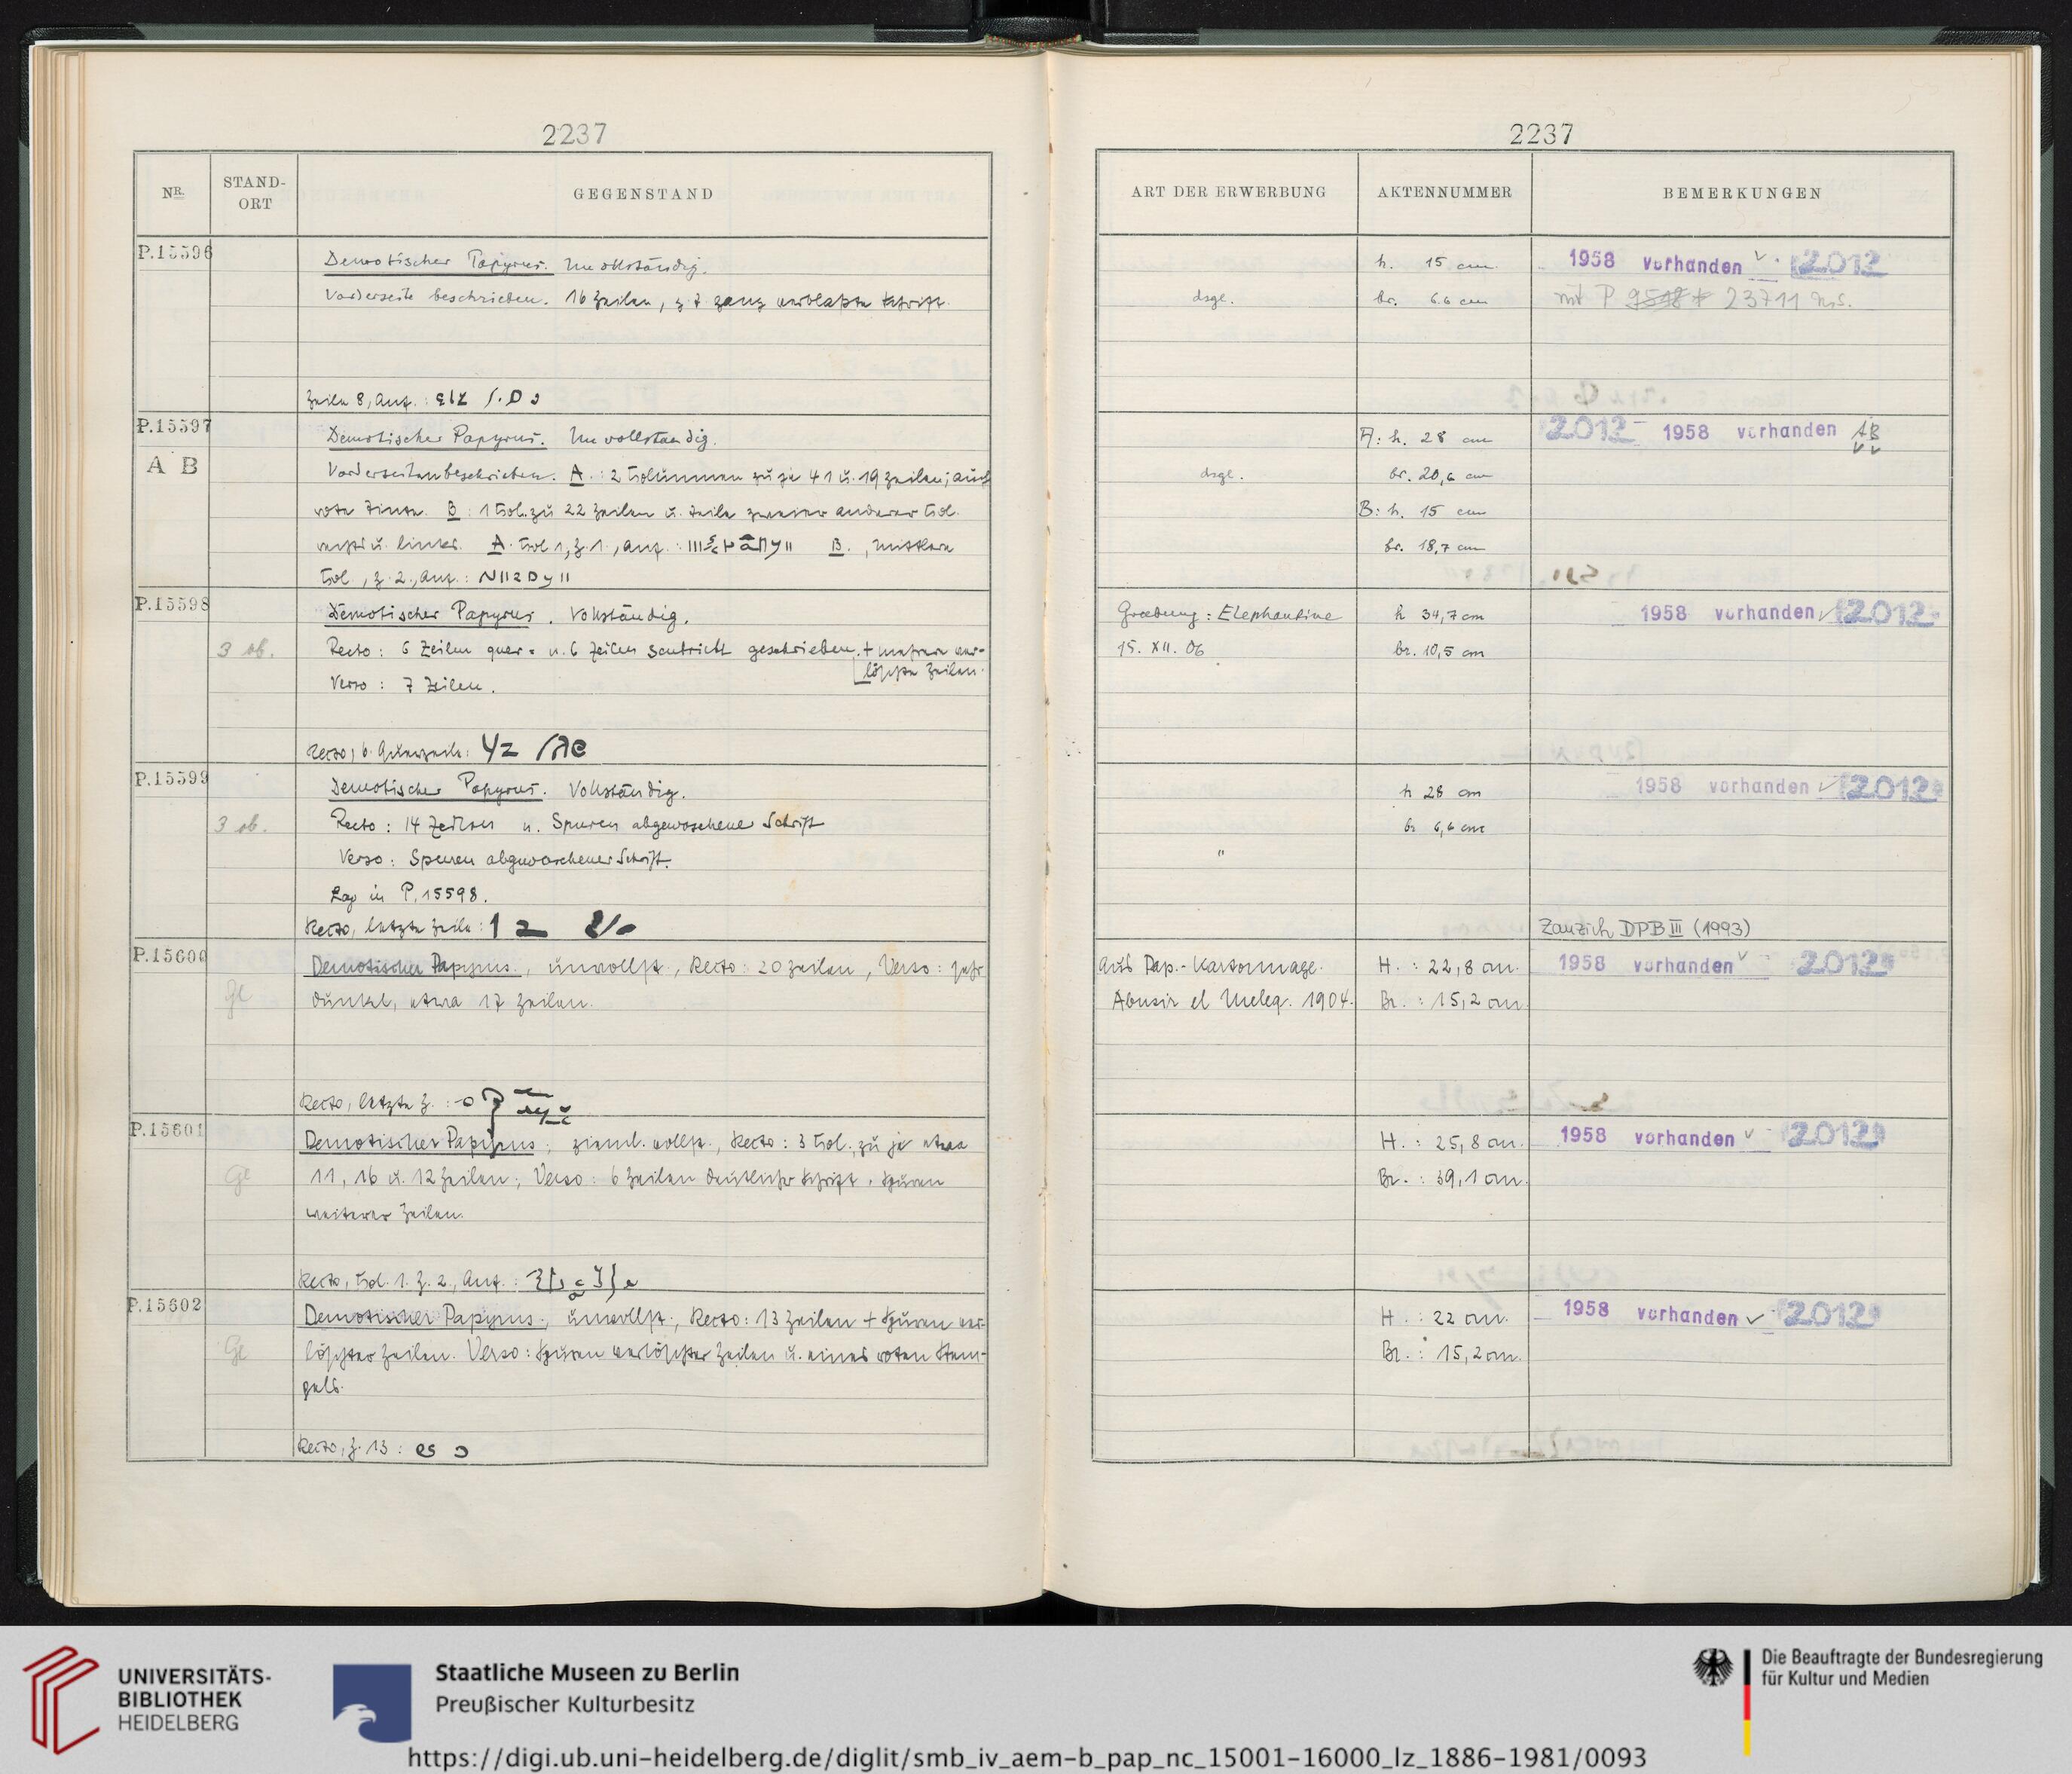 2237
NR. STAND-ORT GEGENSTAND
P.15596 Demotischer Papyrus. Unvollständig.
Vorderseite beschrieben. 16 Zeilen, z. T. ganz verblaßte Schrift.
Zeile 8, Anf. :
P.15597 Demotischer Papyrus. Unvollständig.
A B Vorderseiten beschrieben. A.: 2 Kolumnen zu je 41 u. 19 Zeilen; auch
rote Tinte. B : 1 Kol. zu 22 Zeilen u. Teile zweier anderer Kol.
rechts u. links. A. Kol 1, Z. 1, Anf. : B., mittlere
Kol., Z. 2., Anf. :
P.15598 Demotischer Papyrus. Vollständig.
3 ob. Recto : 6 Zeilen quer- u. 6 Zeilen senkrecht geschrieben. + mehrere ver-
löschte Zeilen.
Verso : 7 Zeilen.
Recto, 6. :
P.15599 Demotischer Papyrus. Vollständig.
3 ob. Recto : 14 Zeilen u. Spuren abgewaschener Schrift
Verso : Spuren abgewaschener Schrift.
Lag in P. 15598.
Recto, letzte Zeile :
P.15600 Demotischer Papyrus., unvollst., Recto : 20 Zeilen, Verso : sehr
Gl dunkel, etwa 17 Zeilen.
Recto, letzte Z. :
P.15601 Demotischer Papyrus; zieml. vollst., Recto : 3 Kol. zu je etwa
Gl 11, 16 u. 12 Zeilen; Verso : 6 Zeilen deutlicher Schrift, Spuren
weiterer Zeilen.
Recto, Kol. 1. Z. 2, Anf. :
P.15602 Demotischer Papyrus., unvollst., Recto : 13 Zeilen + Spuren ver-
Gl löschter Zeilen. Verso : Spuren verlöschter Zeilen u. eines roten Stem-
pels.
Recto, Z. 13 :
2237
ART DER ERWERBUNG AKTENNUMMER BEMERKUNGEN
h. 15 cm 1958 vorhanden ✓ 2012
dsgl. br. 6.6 cm mit P 23711
A: h. 28 cm 2012 1958 vorhanden AB
dsgl. br. 20,6 cm
B: h. 15 cm
br. 18,7 cm
Grabung : Elephantine h 34,7 cm 1958 vorhanden ✓ 2012
15. XII. 06 br. 10,5 cm
h 28 cm 1958 vorhanden ✓ 2012
br 6,6 cm
"
Zauzich DPB III (1993)
Aus Pap.-Kartonnage. H. : 22,8 cm. 1958 vorhanden ✓ 2012
Abusir el Meleq. 1904. Br. : 15,2 cm.
H. : 25,8 cm. 1958 vorhanden ✓ 2012
Br. : 39,1 cm.
H. : 22 cm. 1958 vorhanden ✓ 2012
Br. : 15,2 cm.
UNIVERSITÄTS-
BIBLIOTHEK
HEIDELBERG
Staatliche Museen zu Berlin
Preußischer Kulturbesitz
Die Beauftragte der Bundesregierung
für Kultur und Medien
https://digi.ub.uni-heidelberg.de/diglit/smb_iv_aem-b_pap_nc_15001-16000_lz_1886-1981/0093